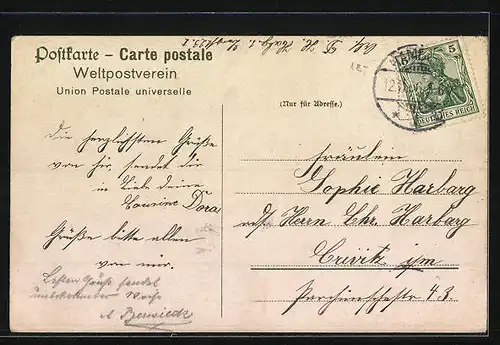 Postkarte – Carte postale
Weltpostverein
Union Postale universelle
(Nur für Adresse.)
5
DEUTSCHES REICH
Die herzlichsten Grüße
von hier, sendet dir
in Liebe deine
Cousine Dora
Grüße bitte allen
von mir.
Besten Gruß sendet
unbekannter Weise
Fräulein
Sophie Harbarg
adr. Herrn Chr. Harbarg
Crivitz i/m
Parchimerstr 43.